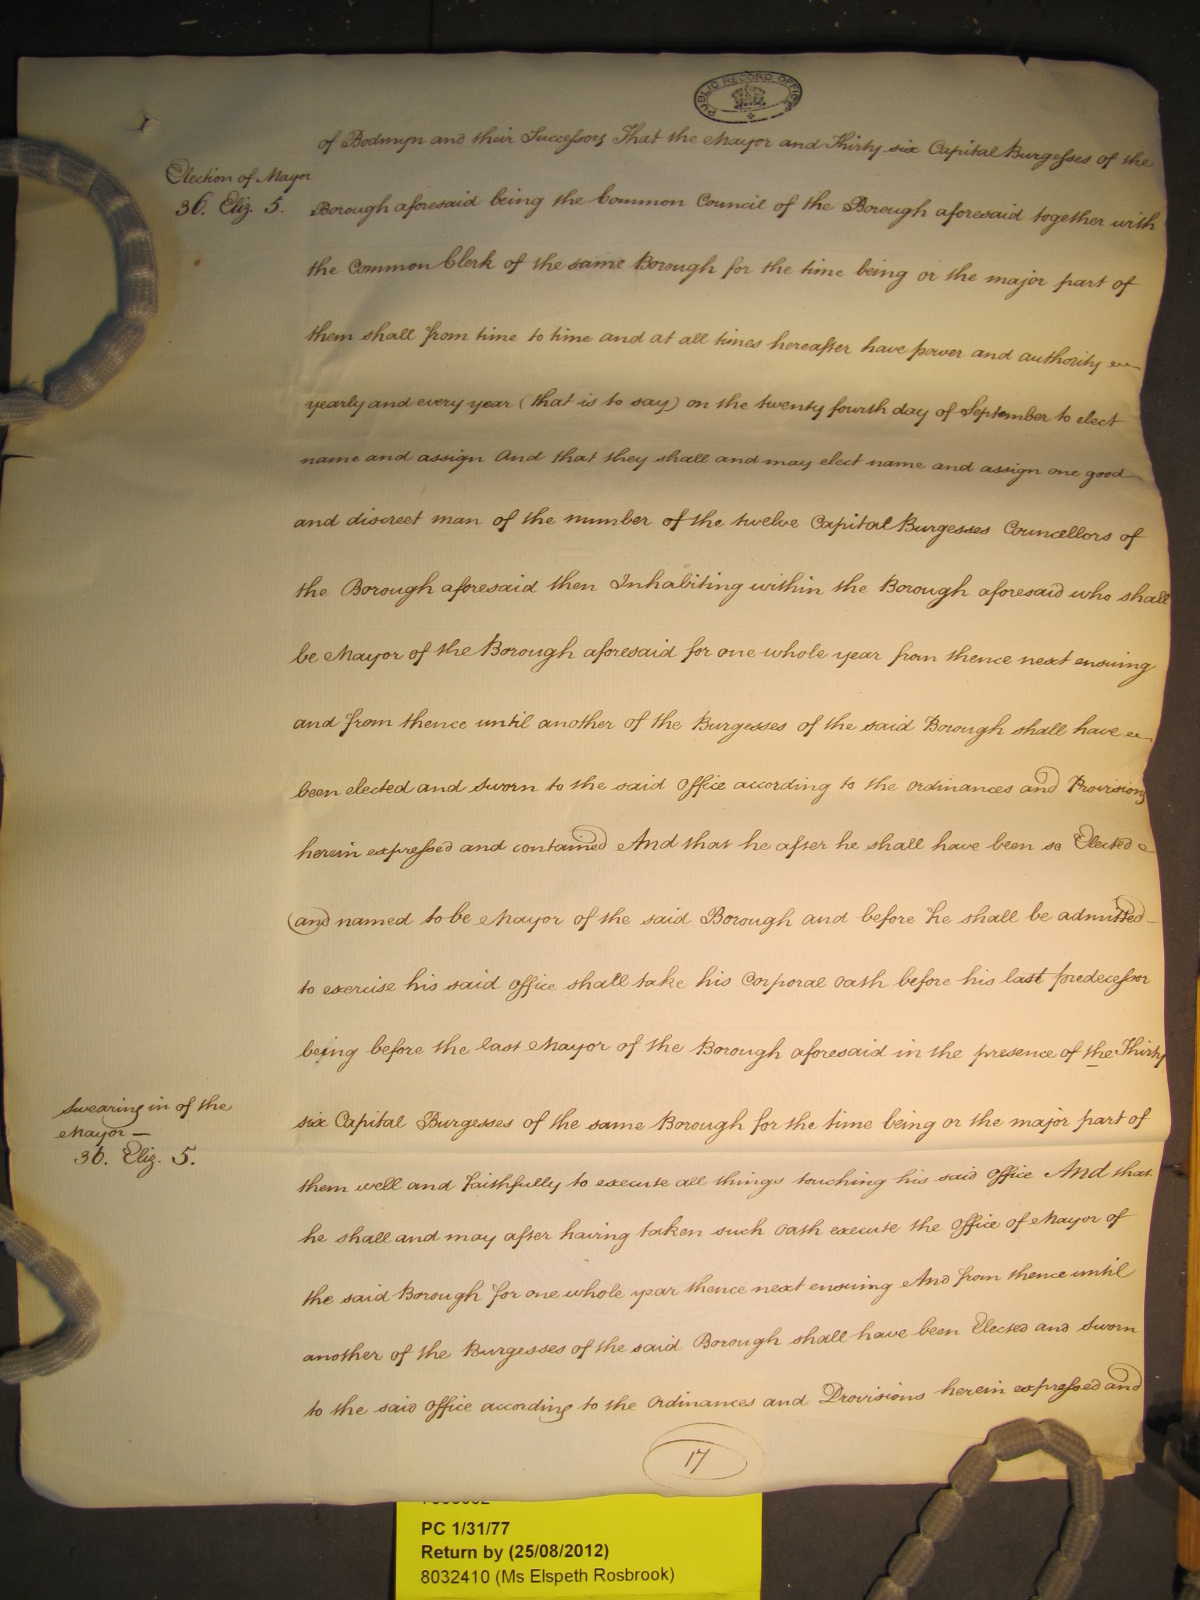 PUBLIC RECORD OFFICE
of Bodmyn and their Successors That the Mayor and Thirty six Capital Burgesses of the
Election of Mayor
36. Eliz. 5.
Borough aforesaid being the Common Council of the Borough aforesaid together with
the Common Clerk of the same Borough for the time being or the major part of
them shall from time to time and at all times hereafter have power and authority
yearly and every year (that is to say) on the twenty fourth day of September to elect
name and assign And that they shall and may elect name and assign one good
and discreet man of the number of the twelve Capital Burgesses Councellors of
the Borough aforesaid then Inhabiting within the Borough aforesaid who shall
be Mayor of the Borough aforesaid for one whole year from thence next ensuing
and from thence until another of the Burgesses of the said Borough shall have
been elected and sworn to the said office according to the ordinances and Provisions
herein expressed and contained And that he after he shall have been so Elected
and named to be Mayor of the said Borough and before he shall be admitted
to exercise his said office shall take his Corporal oath before his last predecessor
being before the last Mayor of the Borough aforesaid in the presence of the Thirty
Swearing in of the
Mayor —
36. Eliz. 5.
six Capital Burgesses of the same Borough for the time being or the major part of
them well and faithfully to execute all things touching his said office And that
he shall and may after having taken such oath execute the Office of Mayor of
the said Borough for one whole year thence next ensuing And from thence until
another of the Burgesses of the said Borough shall have been Elected and Sworn
to the said office according to the Ordinances and Provisions herein expressed and
17
PC 1/31/77
Return by (25/08/2012)
8032410 (Ms Elspeth Rosbrook)